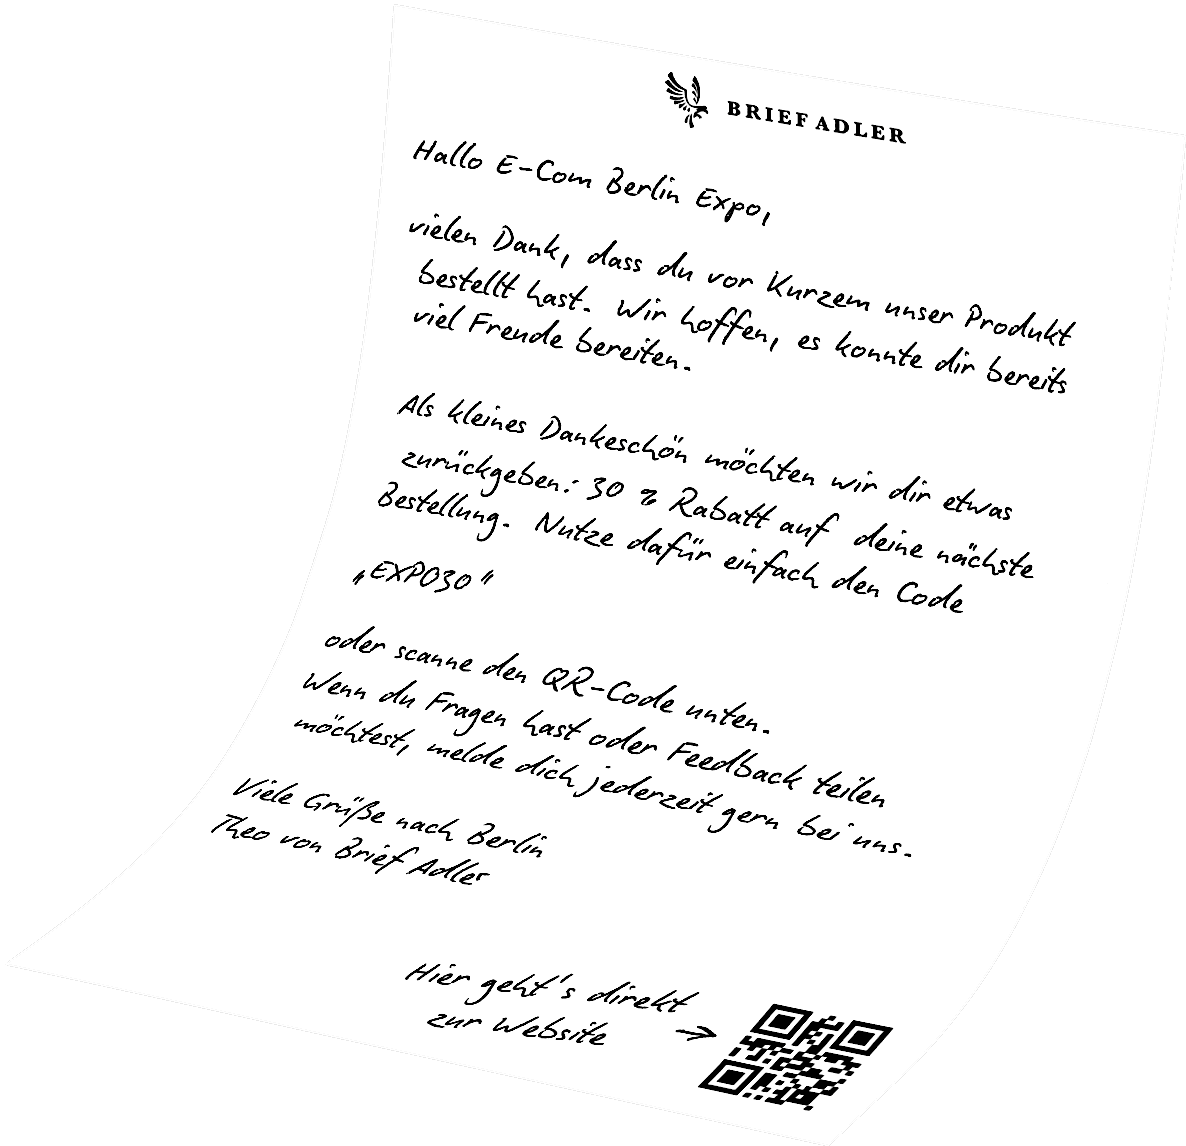 BRIEF ADLER
Hallo E-Com Berlin Expo,
vielen Dank, dass du vor Kurzem unser Produkt
bestellt hast. Wir hoffen, es konnte dir bereits
viel Freude bereiten.
Als kleines Dankeschön möchten wir dir etwas
zurückgeben: 30 % Rabatt auf deine nächste
Bestellung. Nutze dafür einfach den Code
„EXPO30“
oder scanne den QR-Code unten.
Wenn du Fragen hast oder Feedback teilen
möchtest, melde dich jederzeit gern bei uns.
Viele Grüße nach Berlin
Theo von Brief Adler
Hier geht's direkt
zur Website →